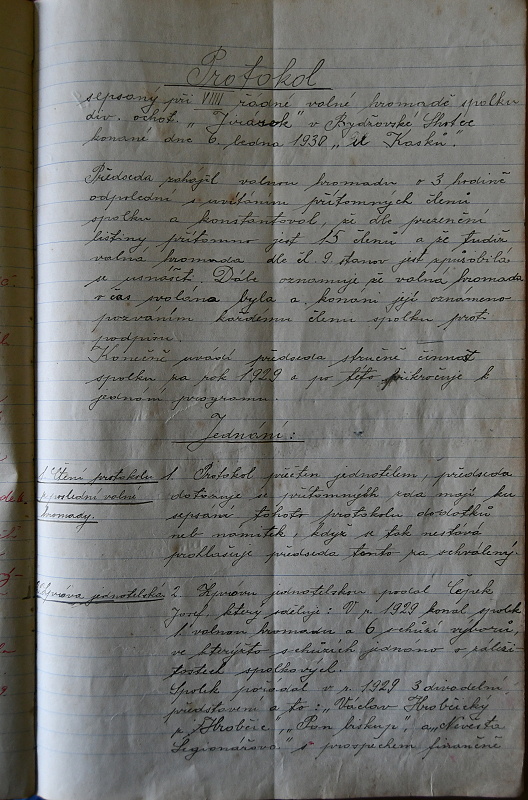 Protokol
sepsaný při VIIII řádné valné hromadě spolku
div. ochot. "Jirásek" v Bydžovské Lhotce
konané dne 6. ledna 1930 "u Kašků".
Předseda zahájil valnou hromadu o 3 hodině
odpolední s uvítáním přítomných členů
spolku a konstatoval, že dle presenční
listiny přítomno jest 15 členů a že tudíž
valná hromada dle čl. 9. stanov jest způsobilá
se usnášeti. Dále oznamuje že valná hromada
v čas svolána byla a konání její oznámeno
pozváním každému členu spolku proti
podpisu.
Konečně uvádí předseda stručně činnost
spolku za rok 1929 a po této přikročuje k
jednání programu.
Jednání:
1. Čtení protokolu
z poslední valné
hromady.
1. Protokol přečten jednatelem, předseda
dotazuje se přítomných zda mají ku
sepsání tohoto protokolu dodatků
neb námitek, když se tak nestává
prohlašuje předseda tento za schválený.
2. Zpráva jednatelská
2. Zprávu jednatelskou podal Čepek
Josef který sděluje: V r. 1929 konal spolek
1 valnou hromadu a 6 schůzí výboru,
ve kterýchto schůzích jednáno o záleži-
tostech spolkových.
Spolek pořádal v r. 1929 3 divadelní
představení a to: "Václav Hrobčický
z Hrobčic", "Pan biskup", a "Nevěsta
Legionářova" s prospěchem finančně